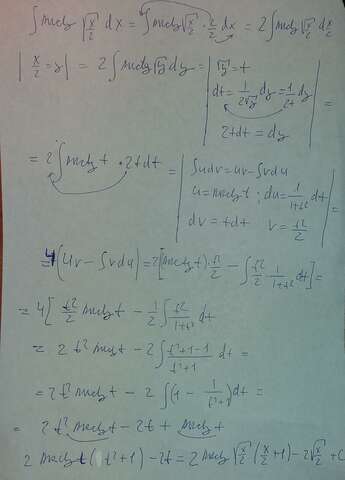 ∫ arctg √(x/2) dx = ∫ arctg √(x/2) · 2/2 dx = 2 ∫ arctg √(x/2) d x/2
| x/2 = y | = 2 ∫ arctg √y dy = | √y = t
dt = 1/(2√y) dy = 1/(2t) dy
2tdt = dy | =
= 2 ∫ arctg t · 2t dt = | ∫udv = uv - ∫vdu
u = arctg t · du = 1/(1+t²) dt
dv = t dt v = t²/2 | =
= 4 (uv - ∫vdu) = 2 [(arctg t) · t²/2 - ∫ t²/2 · 1/(1+t²) dt] =
= 4 [ t²/2 arctg t - 1/2 ∫ t²/(1+t²) dt
= 2 t² arctg t - 2 ∫ (t²+1-1)/(t²+1) dt =
= 2t² arctg t - 2 ∫ (1 - 1/(t²+1)) dt =
= 2t² arctg t - 2t + arctg t
2 arctg t (t²+1) - 2t = 2 arctg √(x/2) (x/2 + 1) - 2√(x/2) + C